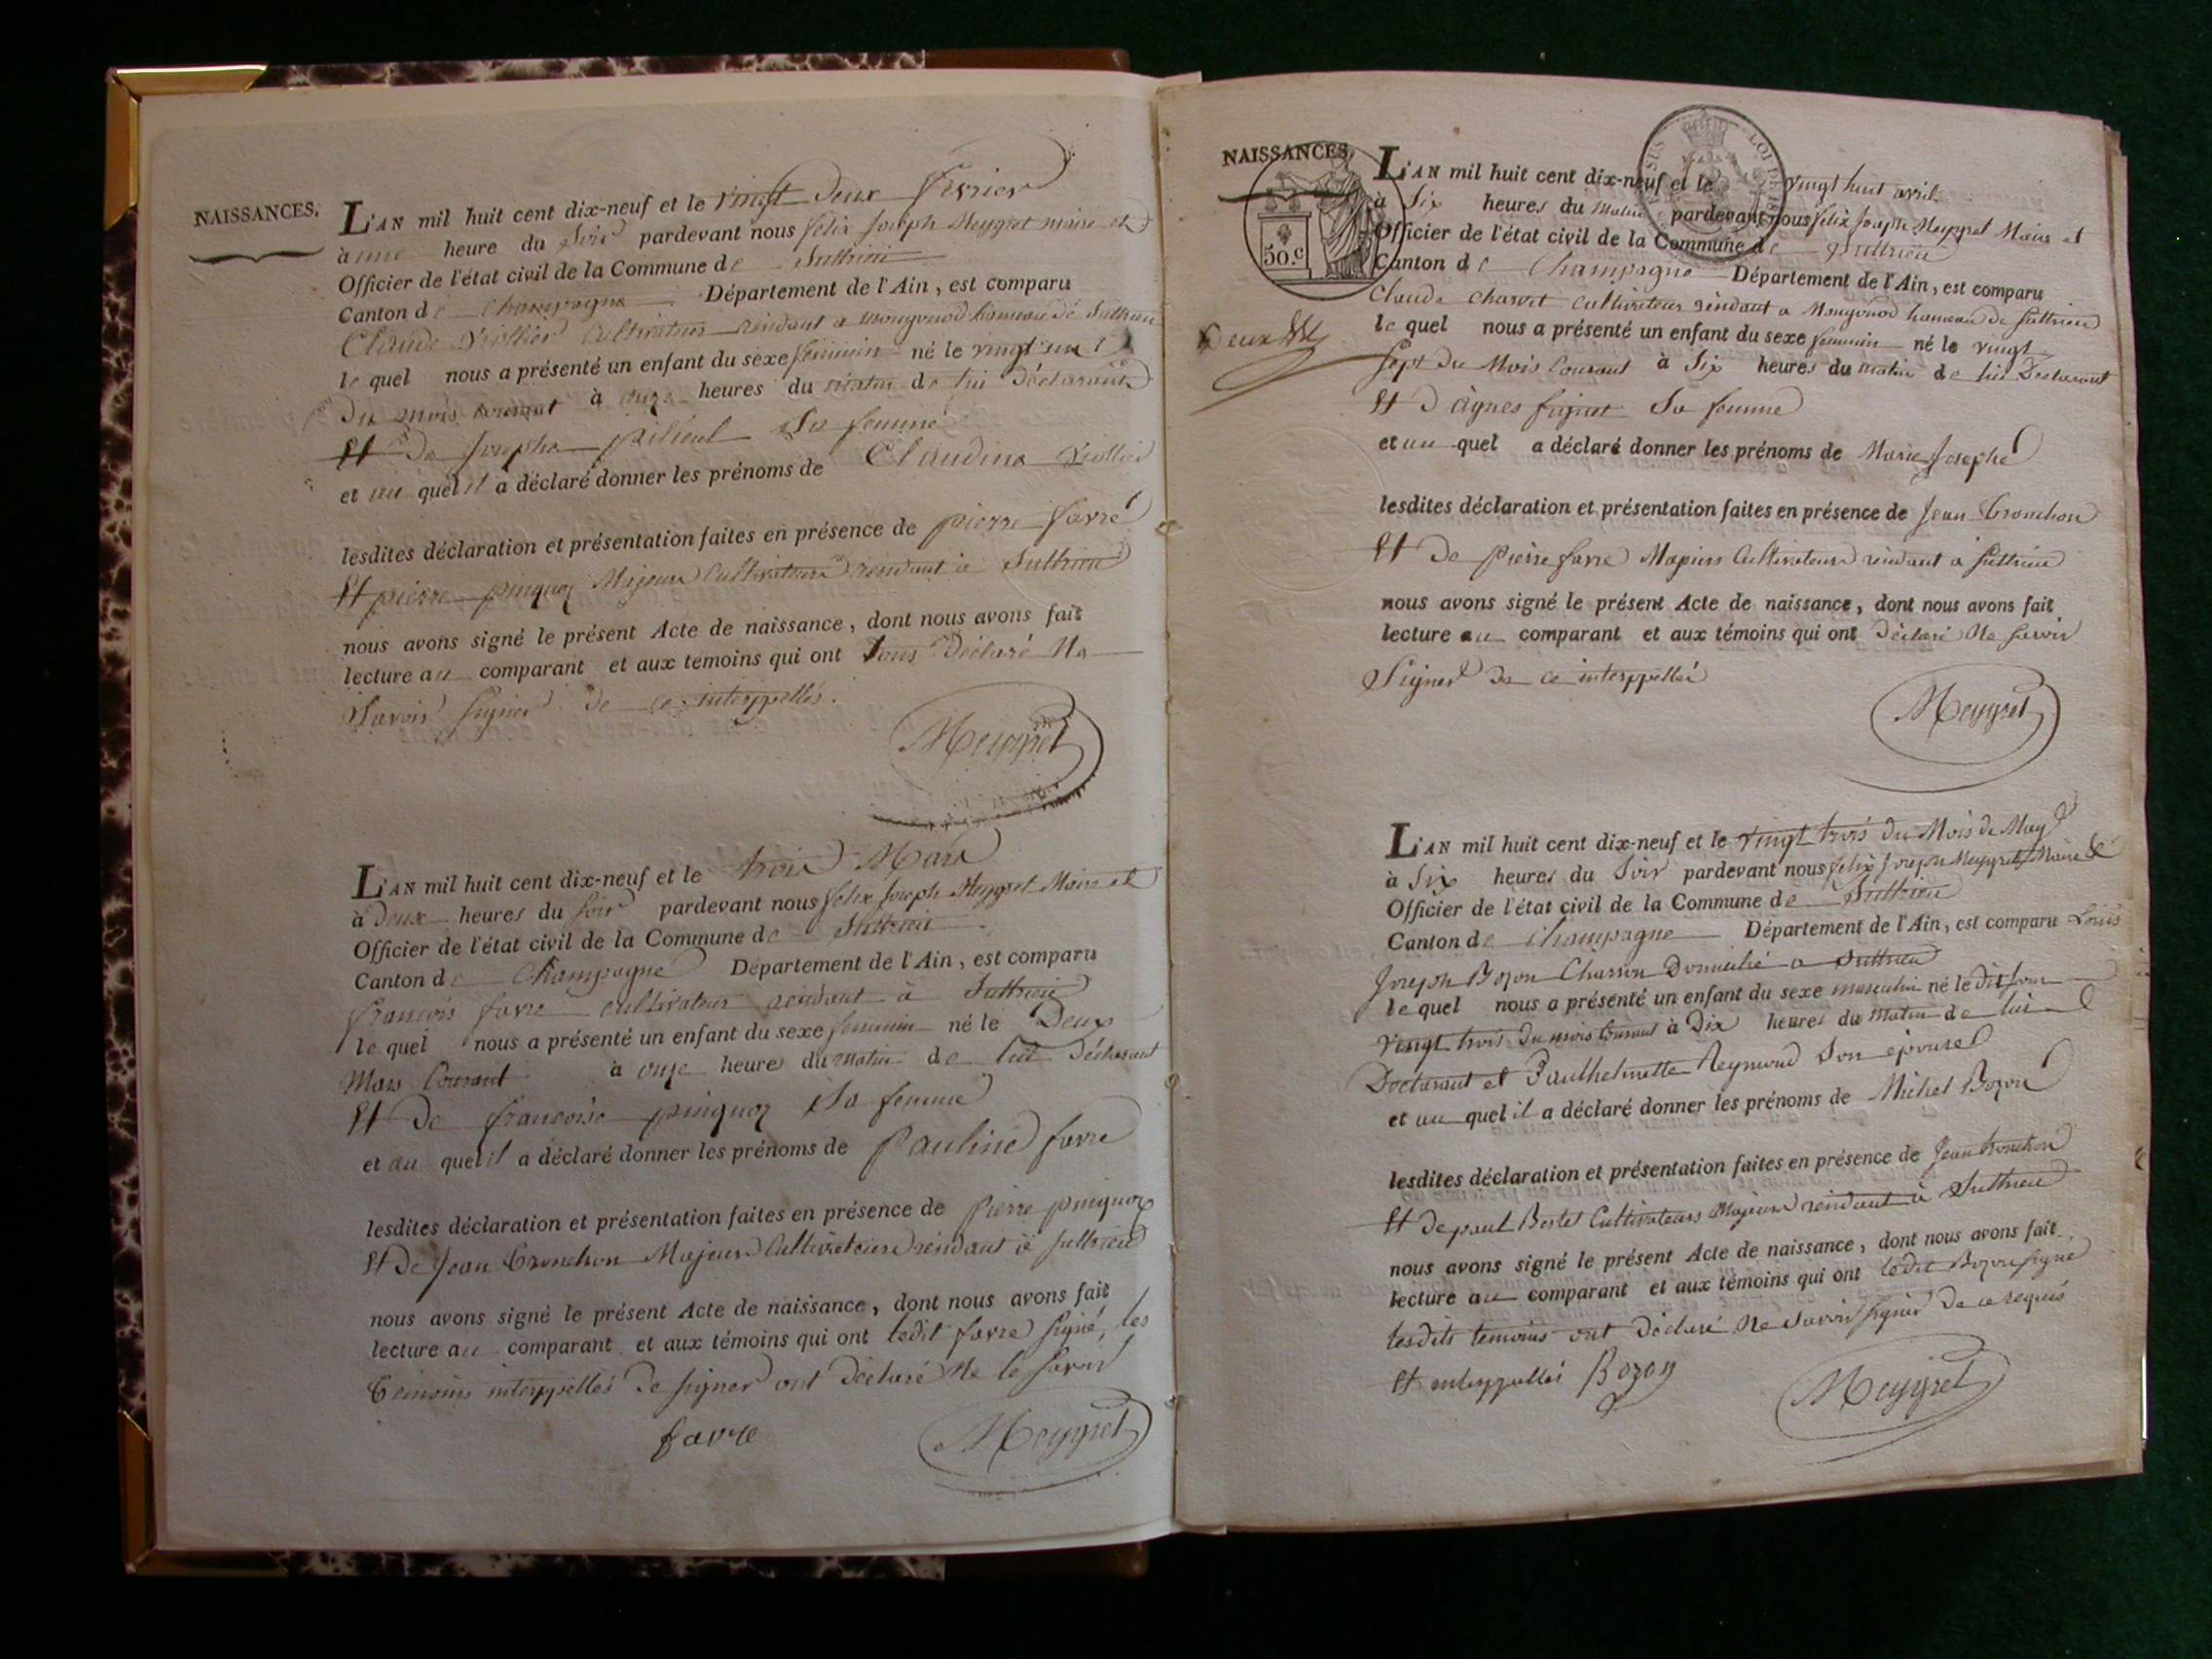 NAISSANCES.
L'AN mil huit cent dix-neuf et le vingt deux fevrier
à une heure du soir pardevant nous felix joseph Meygret maire et
Officier de l'état civil de la Commune de Suttrieu
Canton de Champagne Département de l'Ain, est comparu
Claude cultivateur résidant a mongonod hameau de Suttrieu
le quel nous a présenté un enfant du sexe feminin né le vingt un
du mois courant à onze heures du matin de lui déclarant
Et de josephe sa femme
et au quel il a déclaré donner les prénoms de Claudine
lesdites déclaration et présentation faites en présence de pierre favre
Et pierre pinquoz Majeurs Cultivateurs residant a Suttrieu
nous avons signé le présent Acte de naissance, dont nous avons fait
lecture au comparant et aux temoins qui ont tous déclaré Ne
Savoir signer de ce interppellés.
Meygret
L'AN mil huit cent dix-neuf et le trois Mars
à deux heures du soir pardevant nous felix joseph Meygret Maire et
Officier de l'état civil de la Commune de Suttrieu
Canton de Champagne Département de l'Ain, est comparu
francois favre cultivateur résidant à Suttrieu
le quel nous a présenté un enfant du sexe feminin né le Deux
Mars Courant à onze heures du matin de lui Déclarant
Et de francoise pinquoz Sa femme
et au quel il a déclaré donner les prénoms de Pauline favre
lesdites déclaration et présentation faites en présence de pierre pinquoz
Et De Jean Tronchon Majeurs Cultivateurs residant à suttrieu
nous avons signé le présent Acte de naissance, dont nous avons fait
lecture au comparant et aux témoins qui ont ledit favre signé, les
temoins interppellés de signer ont déclaré Ne le savoir
favre Meygret
NAISSANCES.
50.c
L'AN mil huit cent dix-neuf et le vingt huit avril
à Six heures du Matin pardevant nous felix joseph Meygret Maire et
Officier de l'état civil de la Commune de Suttrieu
Canton de Champagne Département de l'Ain, est comparu
Claude Charvet cultivateur résidant a Mongonod hameau de Suttrieu
Deux
le quel nous a présenté un enfant du sexe feminin né le vingt
Sept du Mois Courant à Six heures du matin de lui Declarant
Et D'Agnes Sa femme
et au quel a déclaré donner les prénoms de Marie Josephe
lesdites déclaration et présentation faites en présence de Jean Tronchon
Et de Pierre favre Majeurs Cultivateurs residant a Suttrieu
nous avons signé le présent Acte de naissance, dont nous avons fait
lecture au comparant et aux témoins qui ont Déclaré Ne savoir
Signer de ce interppellés
Meygret
L'AN mil huit cent dix-neuf et le vingt trois du Mois de May
à Six heures du Soir pardevant nous felix joseph Meygret Maire &
Officier de l'état civil de la Commune de Suttrieu
Canton de Champagne Département de l'Ain, est comparu Louis
Joseph Bozon Charron Domicilié a Suttrieu
le quel nous a présenté un enfant du sexe masculin né le dit jour
Vingt trois du mois Courant à Dix heures du Matin de lui
Declarant et Panthelmette Reymond Son épouse
et au quel il a déclaré donner les prénoms de Michel Bozon
lesdites déclaration et présentation faites en présence de Jean Tronchon
Et de paul Cultivateurs Majeurs residant à Suttrieu
nous avons signé le présent Acte de naissance, dont nous avons fait
lecture au comparant et aux témoins qui ont ledit Bozon signé
lesdits temoins ont déclaré Ne Savoir signer de ce requis
Et interppellés Bozon
Meygret